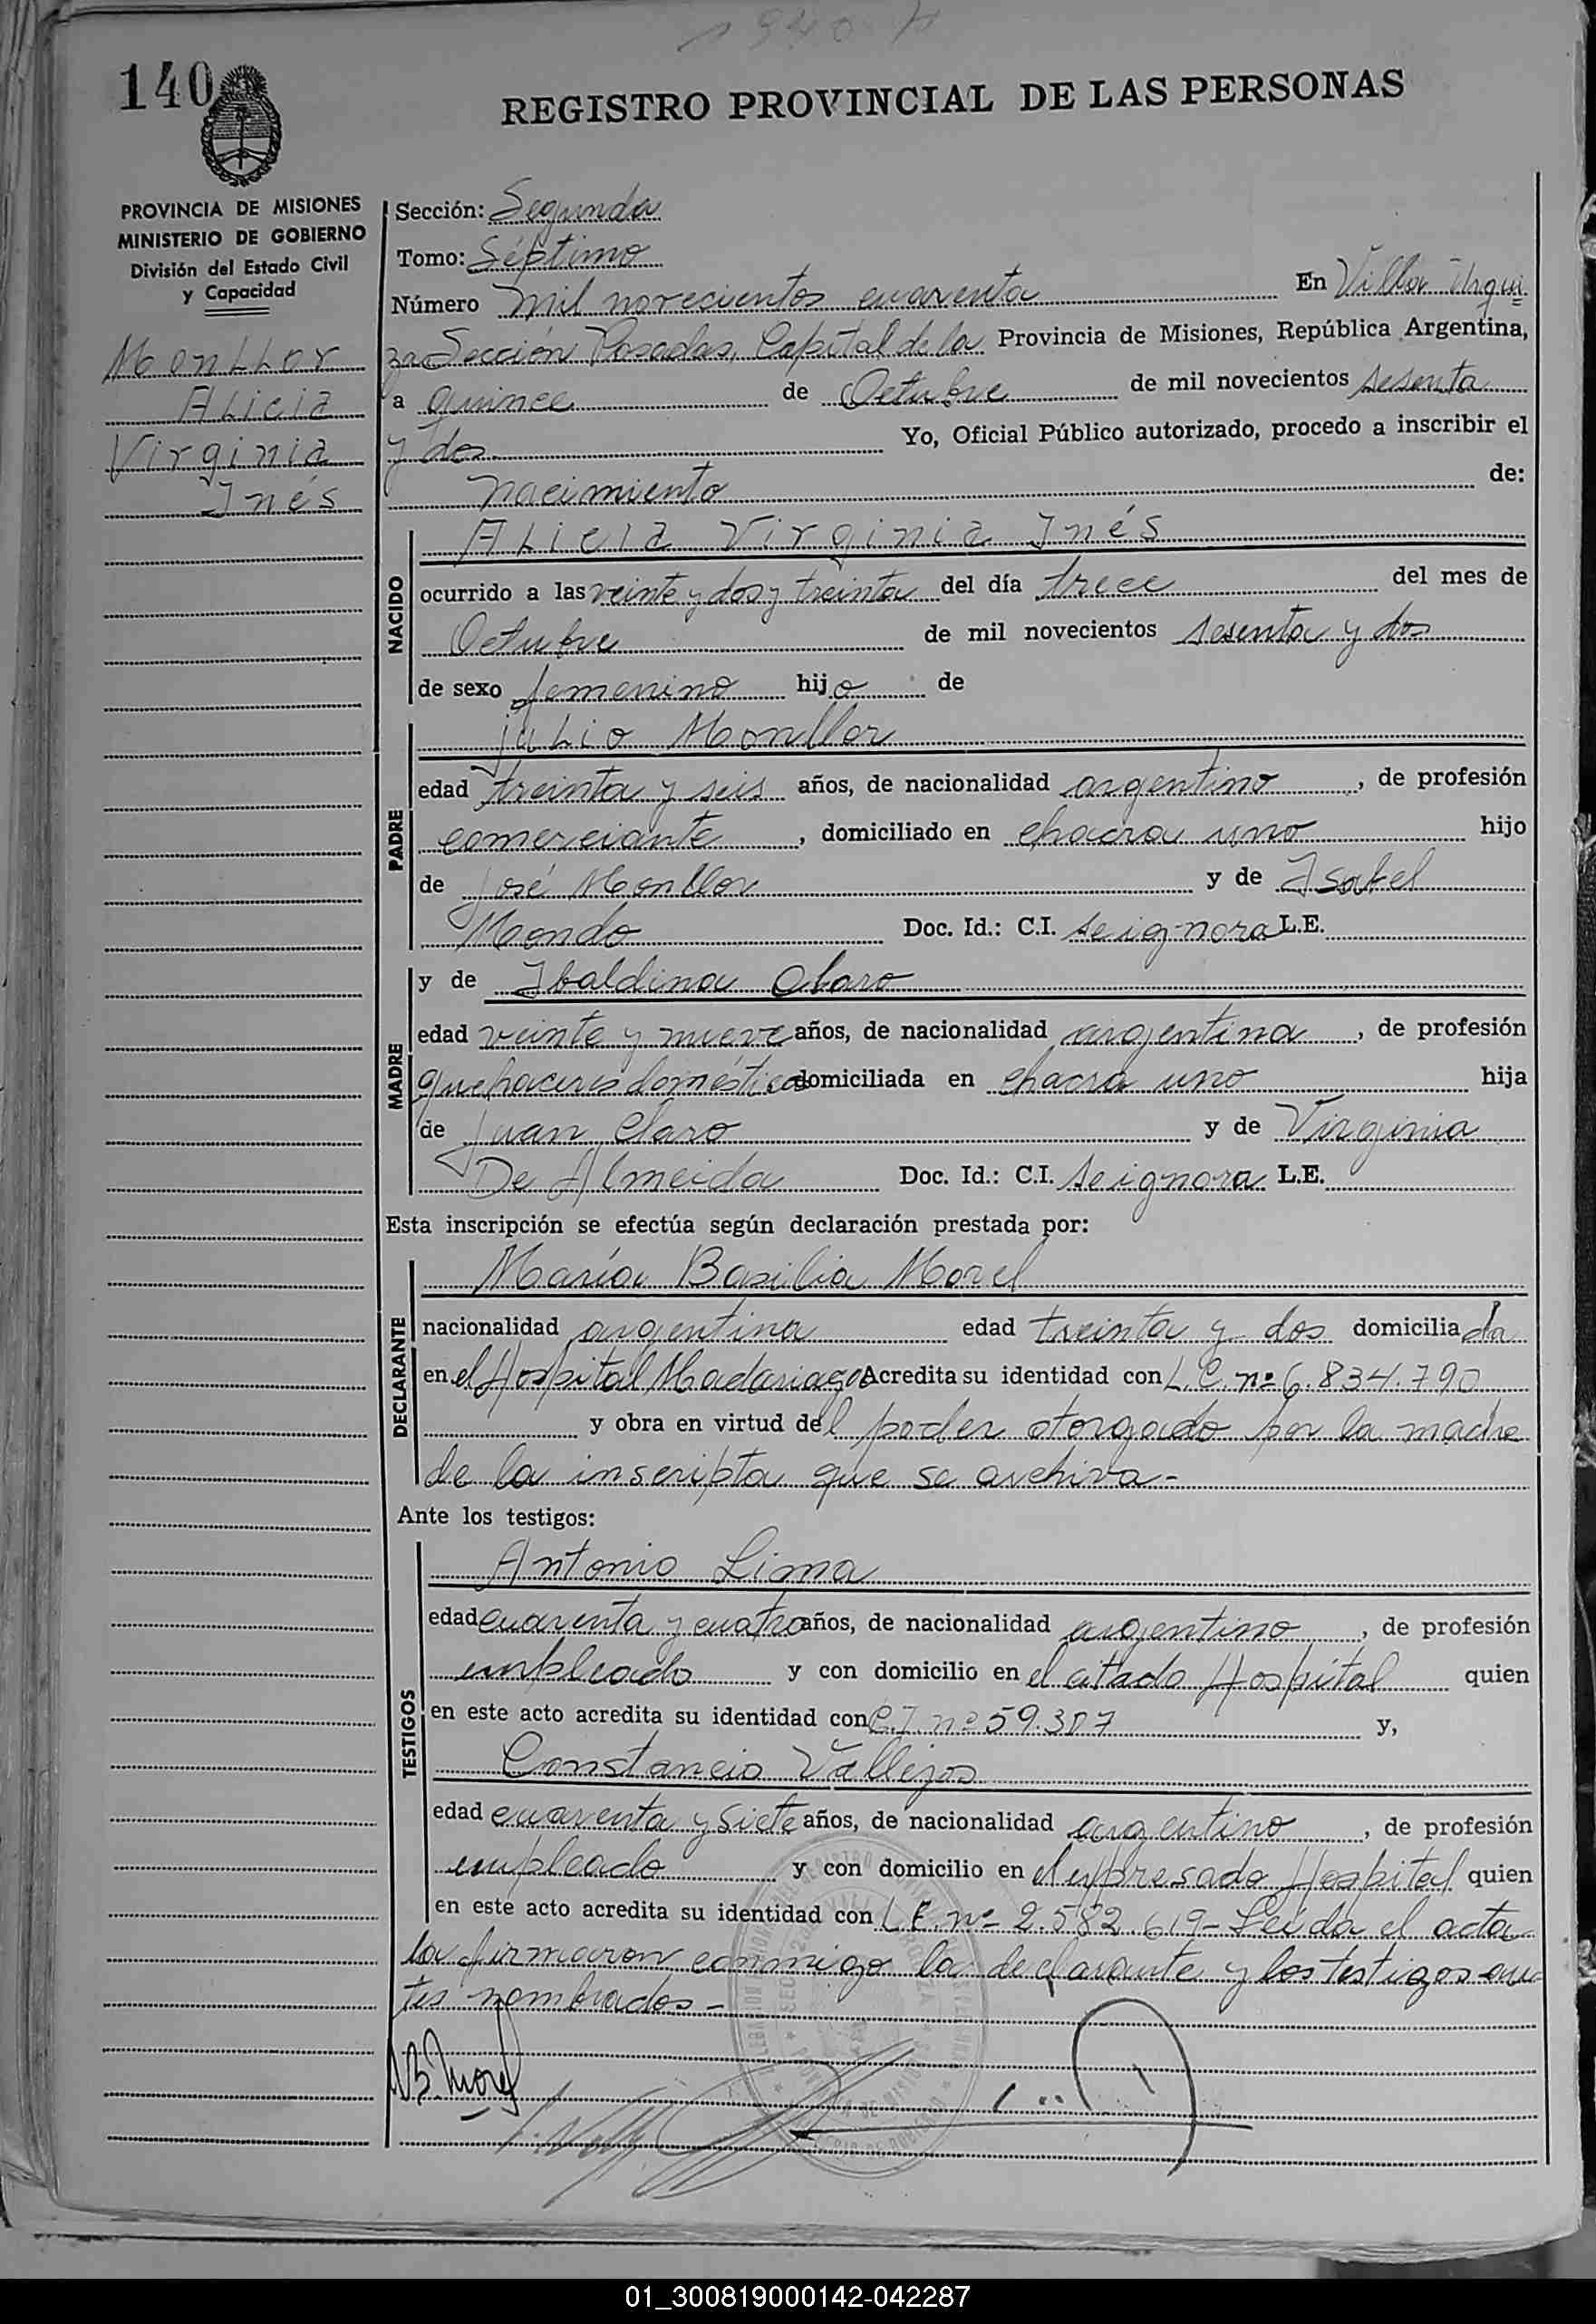 1940 H
140
REGISTRO PROVINCIAL DE LAS PERSONAS
PROVINCIA DE MISIONES
MINISTERIO DE GOBIERNO
División del Estado Civil
y Capacidad
Monllor
Alicia
Virginia
Inés
Sección: Segunda
Tomo: Séptimo
Número mil novecientos cuarenta En Villa Urqui
za Sección Posadas, Capital de la Provincia de Misiones, República Argentina,
a quince de Octubre de mil novecientos sesenta
y dos Yo, Oficial Público autorizado, procedo a inscribir el
nacimiento de:
NACIDO
Alicia Virginia Inés
ocurrido a las veinte y dos y treinta del día trece del mes de
Octubre de mil novecientos sesenta y dos
de sexo femenino hija de
PADRE
Julio Monllor
edad treinta y seis años, de nacionalidad argentino, de profesión
comerciante, domiciliado en chacra uno hijo
de José Monllor y de Isabel
Mondo Doc. Id.: C.I. se ignora L.E.
MADRE
y de Ibaldina Claro
edad veinte y nueve años, de nacionalidad argentina, de profesión
quehaceres domésticos domiciliada en chacra uno hija
de Juan Claro y de Virginia
De Almeida Doc. Id.: C.I. se ignora L.E.
Esta inscripción se efectúa según declaración prestada por:
DECLARANTE
María Basilia Morel
nacionalidad argentina edad treinta y dos domiciliada
en el Hospital Madariaga Acredita su identidad con L.C. nº 6.834.790
y obra en virtud del poder otorgado por la madre
de la inscripta que se archiva-
Ante los testigos:
TESTIGOS
Antonio Lima
edad cuarenta y cuatro años, de nacionalidad argentino, de profesión
empleado y con domicilio en el citado Hospital quien
en este acto acredita su identidad con C.I. nº 59.307 y,
Constancio Vallejos
edad cuarenta y siete años, de nacionalidad argentino, de profesión
empleado y con domicilio en el expresado Hospital quien
en este acto acredita su identidad con L.E. nº 2.582.619- Leída el acta
la firmaron conmigo la declarante y los testigos an
tes nombrados-
MB Morel
01_300819000142-042287